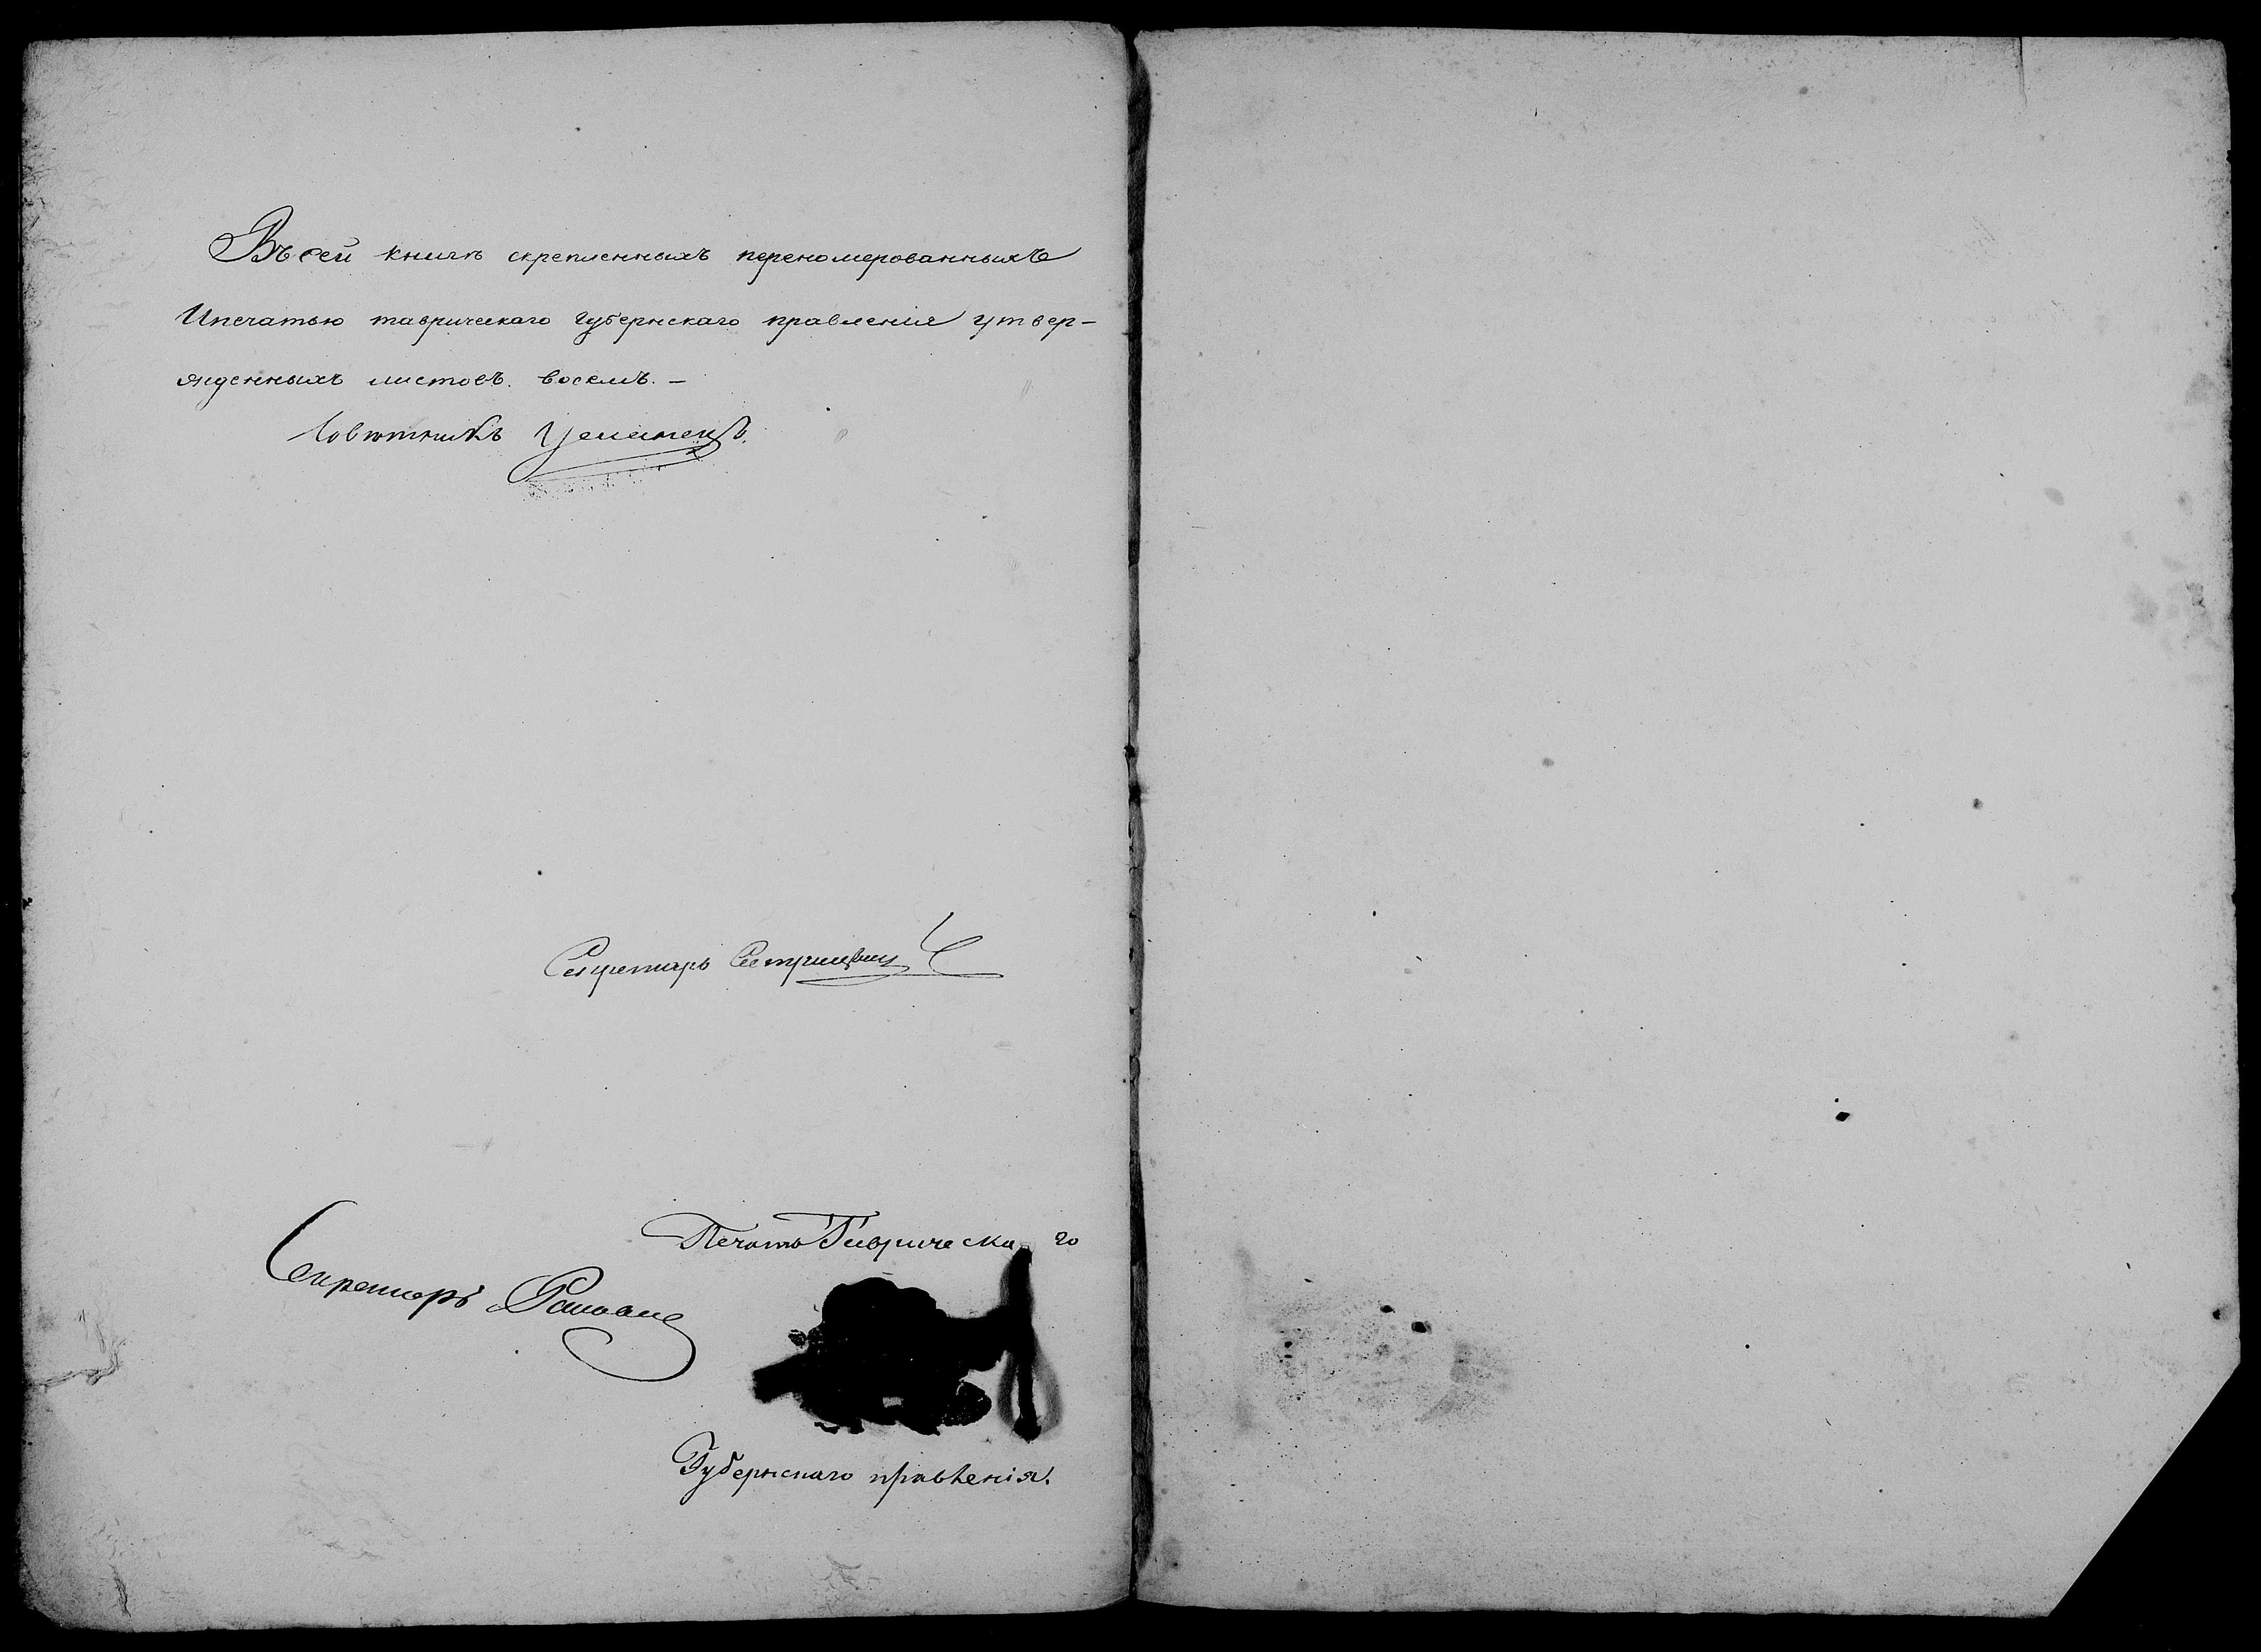 Въ сей книгѣ скрепленныхъ переномерованныхъ
Ипечатью таврическаго губернскаго правленія утвер-
жденныхъ листовъ. восемъ. —
Совѣтникъ
Секретарь
Печать Таврическаго
Секретарь
Губернскаго правленія.